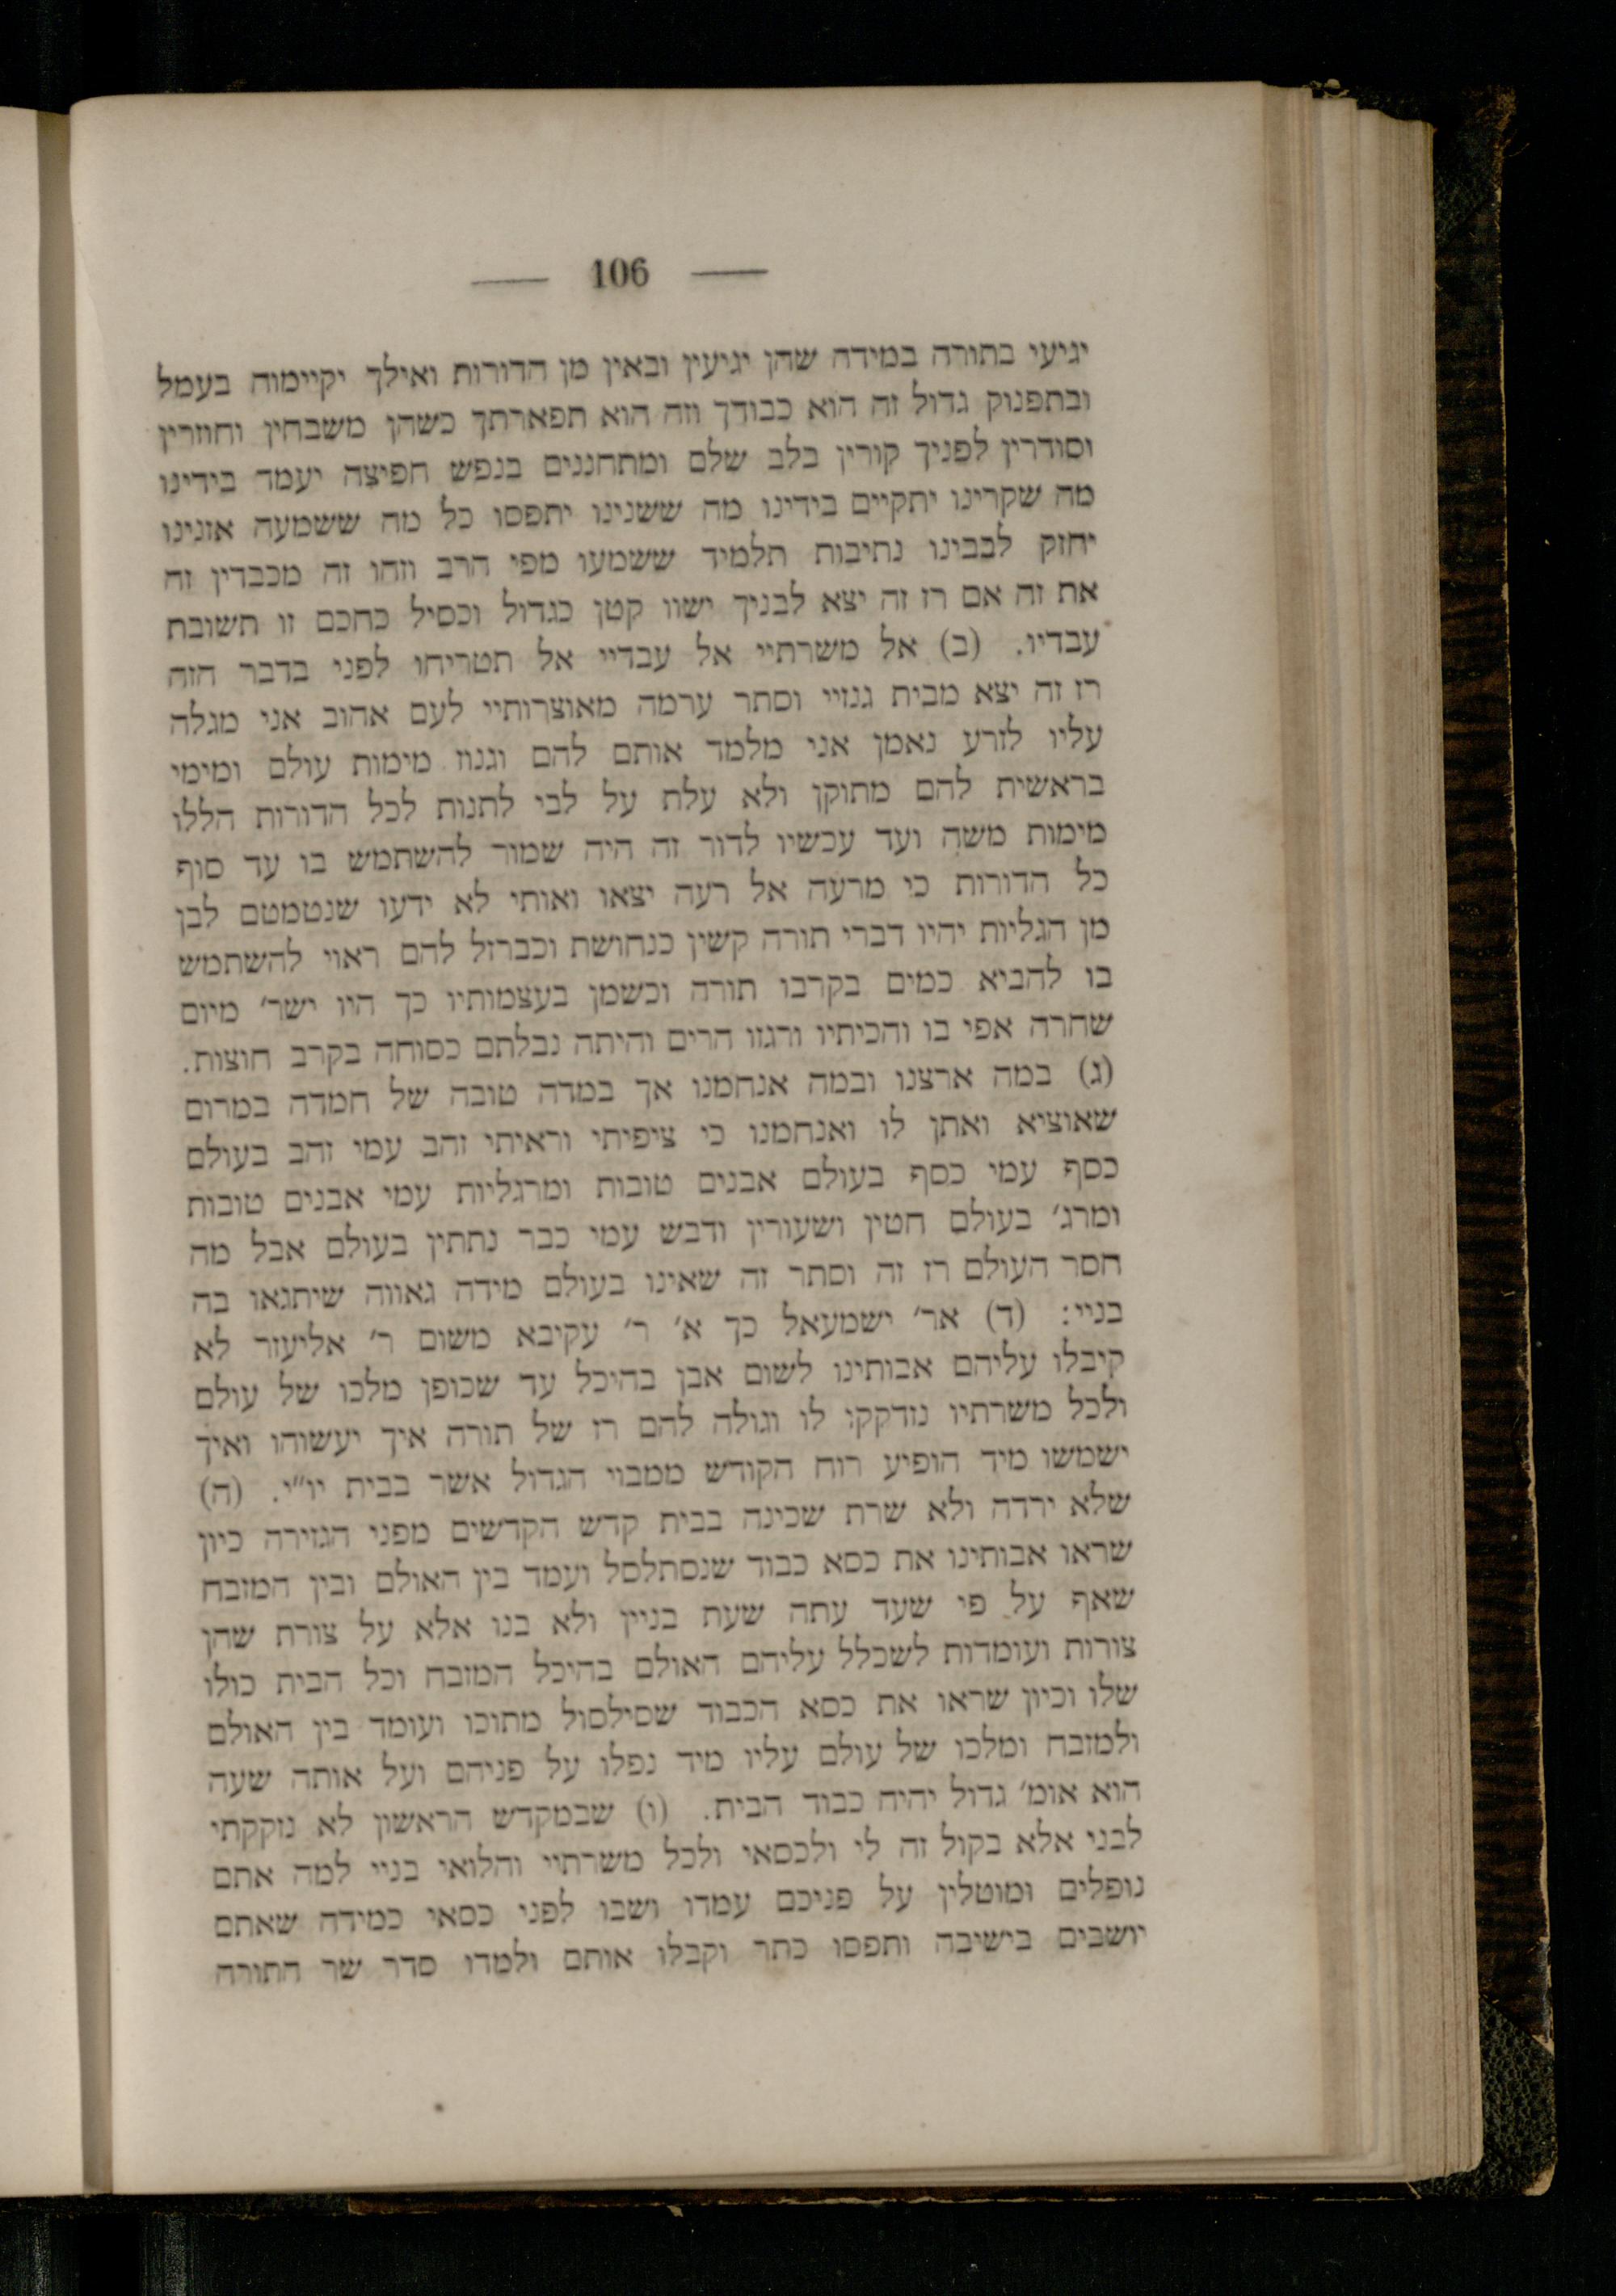 — 106 —
יגיעי בתורה במידה שהן יגיעין ובאין מן הדורות ואילך יקיימוה בעמל
ובתפנוק גדול זה הוא כבודך וזה הוא תפארתך כשהן משבחין וחוזרין
וסודרין לפניך קורין בלב שלם ומתחננים בנפש חפיצה יעמד בידינו
מה שקרינו יתקיים בידינו מה ששנינו יתפסו כל מה ששמעה אזנינו
יחזק לבבינו נתיבות תלמיד ששמעו מפי הרב וזהו זה מכבדין זה
את זה אם רז זה יצא לבניך ישוו קטן כגדול וכסיל כחכם זו תשובת
עבדיו. (ב) אל משרתיי אל עבדיי אל תטריחו לפני בדבר הזה
רז זה יצא מבית גנזיי וסתר ערמה מאוצרותיי לעם אהוב אני מגלה
עליו לזרע נאמן אני מלמד אותם להם וגנוז מימות עולם ומימי
בראשית להם מתוקן ולא עלת על לבי לתנות לכל הדורות הללו
מימות משה ועד עכשיו לדור זה היה שמור להשתמש בו עד סוף
כל הדורות כי מרעה אל רעה יצאו ואותי לא ידעו שנטמטם לבן
מן הגליות יהיו דברי תורה קשין כנחושת וכברזל להם ראוי להשתמש
בו להביא כמים בקרבו תורה וכשמן בעצמותיו כך היו ישר׳ מיום
שחרה אפי בו והכיתיו ורגזו הרים והיתה נבלתם כסוחה בקרב חוצות.
(ג) במה ארצנו ובמה אנחמנו אך במדה טובה של חמדה במרום
שאוציא ואתן לו ואנחמנו כי ציפיתי וראיתי זהב עמי זהב בעולם
כסף עמי כסף בעולם אבנים טובות ומרגליות עמי אבנים טובות
ומרג׳ בעולם חטין ושעורין ודבש עמי כבר נתתין בעולם אבל מה
חסר העולם רז זה וסתר זה שאינו בעולם מידה גאווה שיתגאו בה
בניי: (ד) אר׳ ישמעאל כך א׳ ר׳ עקיבא משום ר׳ אליעזר לא
קיבלו עליהם אבותינו לשום אבן בהיכל עד שכופן מלכו של עולם
ולכל משרתיו נזדקקו לו וגולה להם רז של תורה איך יעשוהו ואיך
ישמשו מיד הופיע רוח הקודש ממבוי הגדול אשר בבית יו״י. (ה)
שלא ירדה ולא שרת שכינה בבית קדש הקדשים מפני הגזירה כיון
שראו אבותינו את כסא כבוד שנסתלסל ועמד בין האולם ובין המזבח
שאף על פי שעד עתה שעת בניין ולא בנו אלא על צורת שהן
צורות ועומדות לשכלל עליהם האולם בהיכל המזבח וכל הבית כולו
שלו וכיון שראו את כסא הכבוד שסילסול מתוכו ועומד בין האולם
ולמזבח ומלכו של עולם עליו מיד נפלו על פניהם ועל אותה שעה
הוא אומ׳ גדול יהיה כבוד הבית. (ו) שבמקדש הראשון לא נזקקתי
לבני אלא בקול זה לי ולכסאי ולכל משרתיי והלואי בניי למה אתם
נופלים ומוטלין על פניכם עמדו ושבו לפני כסאי כמידה שאתם
יושבים בישיבה ותפסו כתר וקבלו אותם ולמדו סדר שר התורה